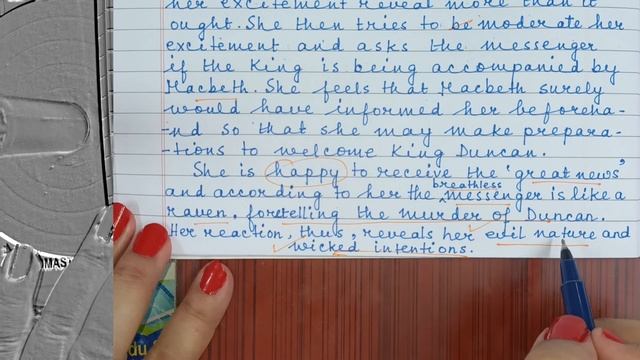 her excitement reveal more than it
ought. She then tries to be moderate her
excitement and asks the messenger
if the King is being accompanied by
Macbeth. She feels that Macbeth surely
would have informed her beforeha-
-nd so that she may make prepara-
-tions to welcome King Duncan.
She is happy to receive the 'great news'
and according to her the breathless messenger is like a
raven. foretelling the murder of Duncan.
Her reaction, thus, reveals her evil nature and
wicked intentions.
MAS
du S